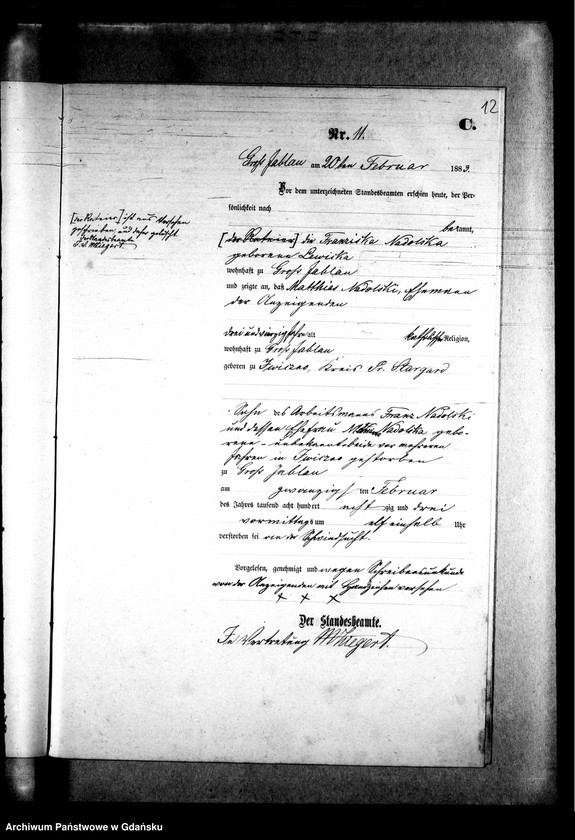 12
C.
Nr. 11.
Groß Jablau am 20ten Februar 1883.
Vor dem unterzeichneten Standesbeamten erschien heute, der Per-
sönlichkeit nach
bekannt,
[der Rentier] die Franziska Nadolska
geborene Lewicka
wohnhaft zu Groß Jablau
und zeigte an, daß Matthias Nadolski, Ehemann
der Anzeigenden
drei und vierzig Jahre alt katholische Religion,
wohnhaft zu Groß Jablau
geboren zu Iwiczno, Kreis Pr. Stargard
Sohn des Arbeitsmanns Franz Nadolski
und dessen Ehefrau Nadolska gebo-
rene - unbekannt beide vor mehreren
Jahren in Iwiczno gestorben
zu Groß Jablau
am zwanzigsten Februar
des Jahres tausend acht hundert acht zig und drei
vormittags um elf einhalb Uhr
verstorben sei an der Schwindsucht.
Vorgelesen, genehmigt und wegen Schreibensunkunde
von der Anzeigenden mit Handzeichen versehen
+ + +
Der Standesbeamte.
In Vertretung
[der Rentier] ist aus Versehen
geschrieben und daher gelöscht
Der Standesbeamte
Archiwum Państwowe w Gdańsku